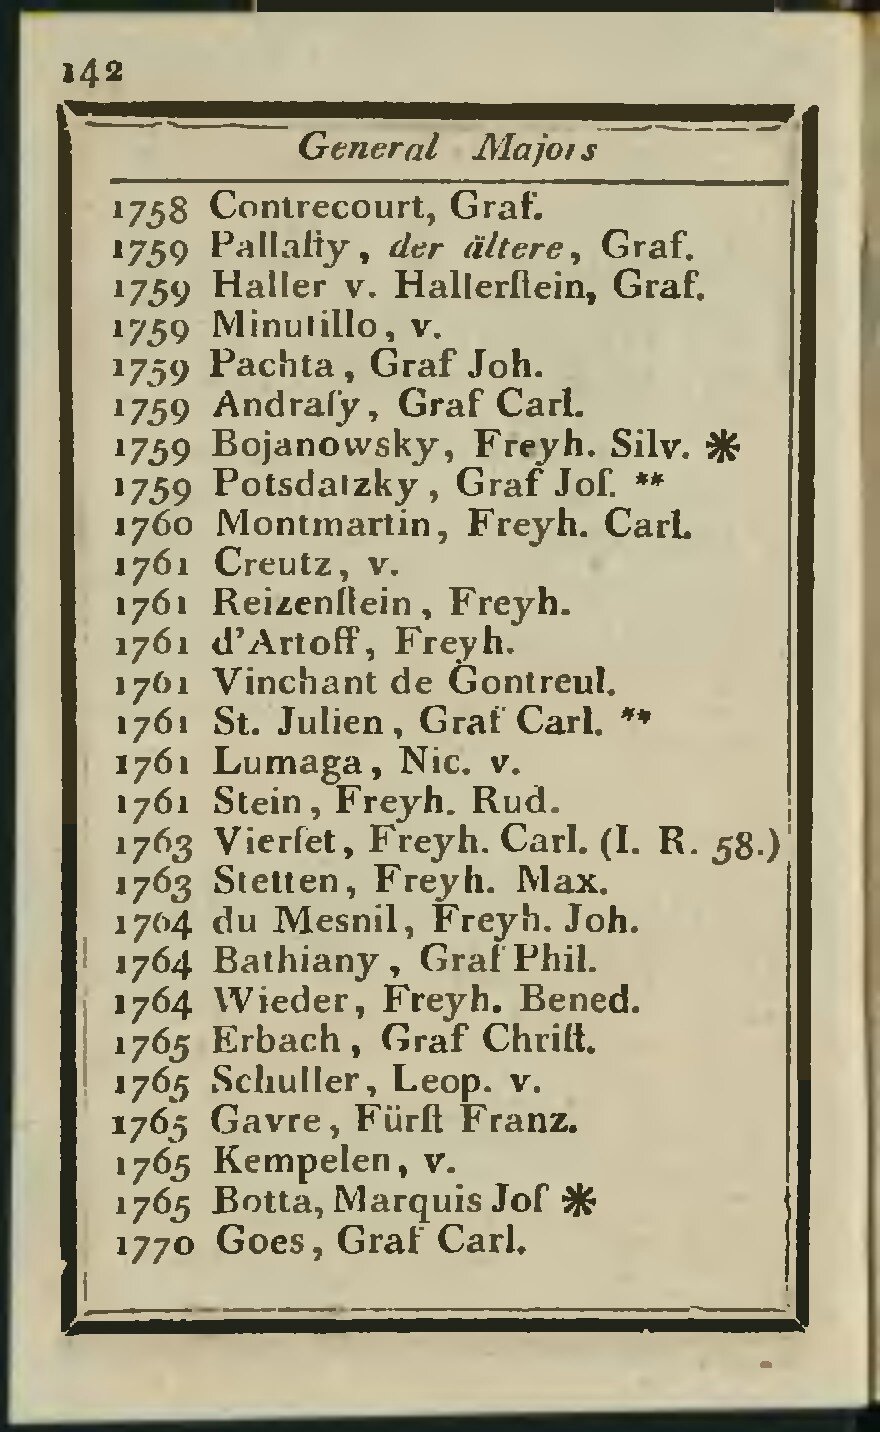 142
General Majors
1758 Contrecourt, Graf.
1759 Pallaſty, der ältere, Graf.
1759 Haller v. Hallerſtein, Graf.
1759 Minutillo, v.
1759 Pachta, Graf Joh.
1759 Andraſy, Graf Carl.
1759 Bojanowsky, Freyh. Silv. *
1759 Potsdatzky, Graf Joſ. **
1760 Montmartin, Freyh. Carl.
1761 Creutz, v.
1761 Reizenſtein, Freyh.
1761 d'Artoff, Freyh.
1761 Vinchant de Gontreul.
1761 St. Julien, Graf Carl. **
1761 Lumaga, Nic. v.
1761 Stein, Freyh. Rud.
1763 Vierſet, Freyh. Carl. (I. R. 58.)
1763 Stetten, Freyh. Max.
1764 du Mesnil, Freyh. Joh.
1764 Bathiany, Graf Phil.
1764 Wieder, Freyh. Bened.
1765 Erbach, Graf Chriſt.
1765 Schuller, Leop. v.
1765 Gavre, Fürſt Franz.
1765 Kempelen, v.
1765 Botta, Marquis Joſ *
1770 Goes, Graf Carl.